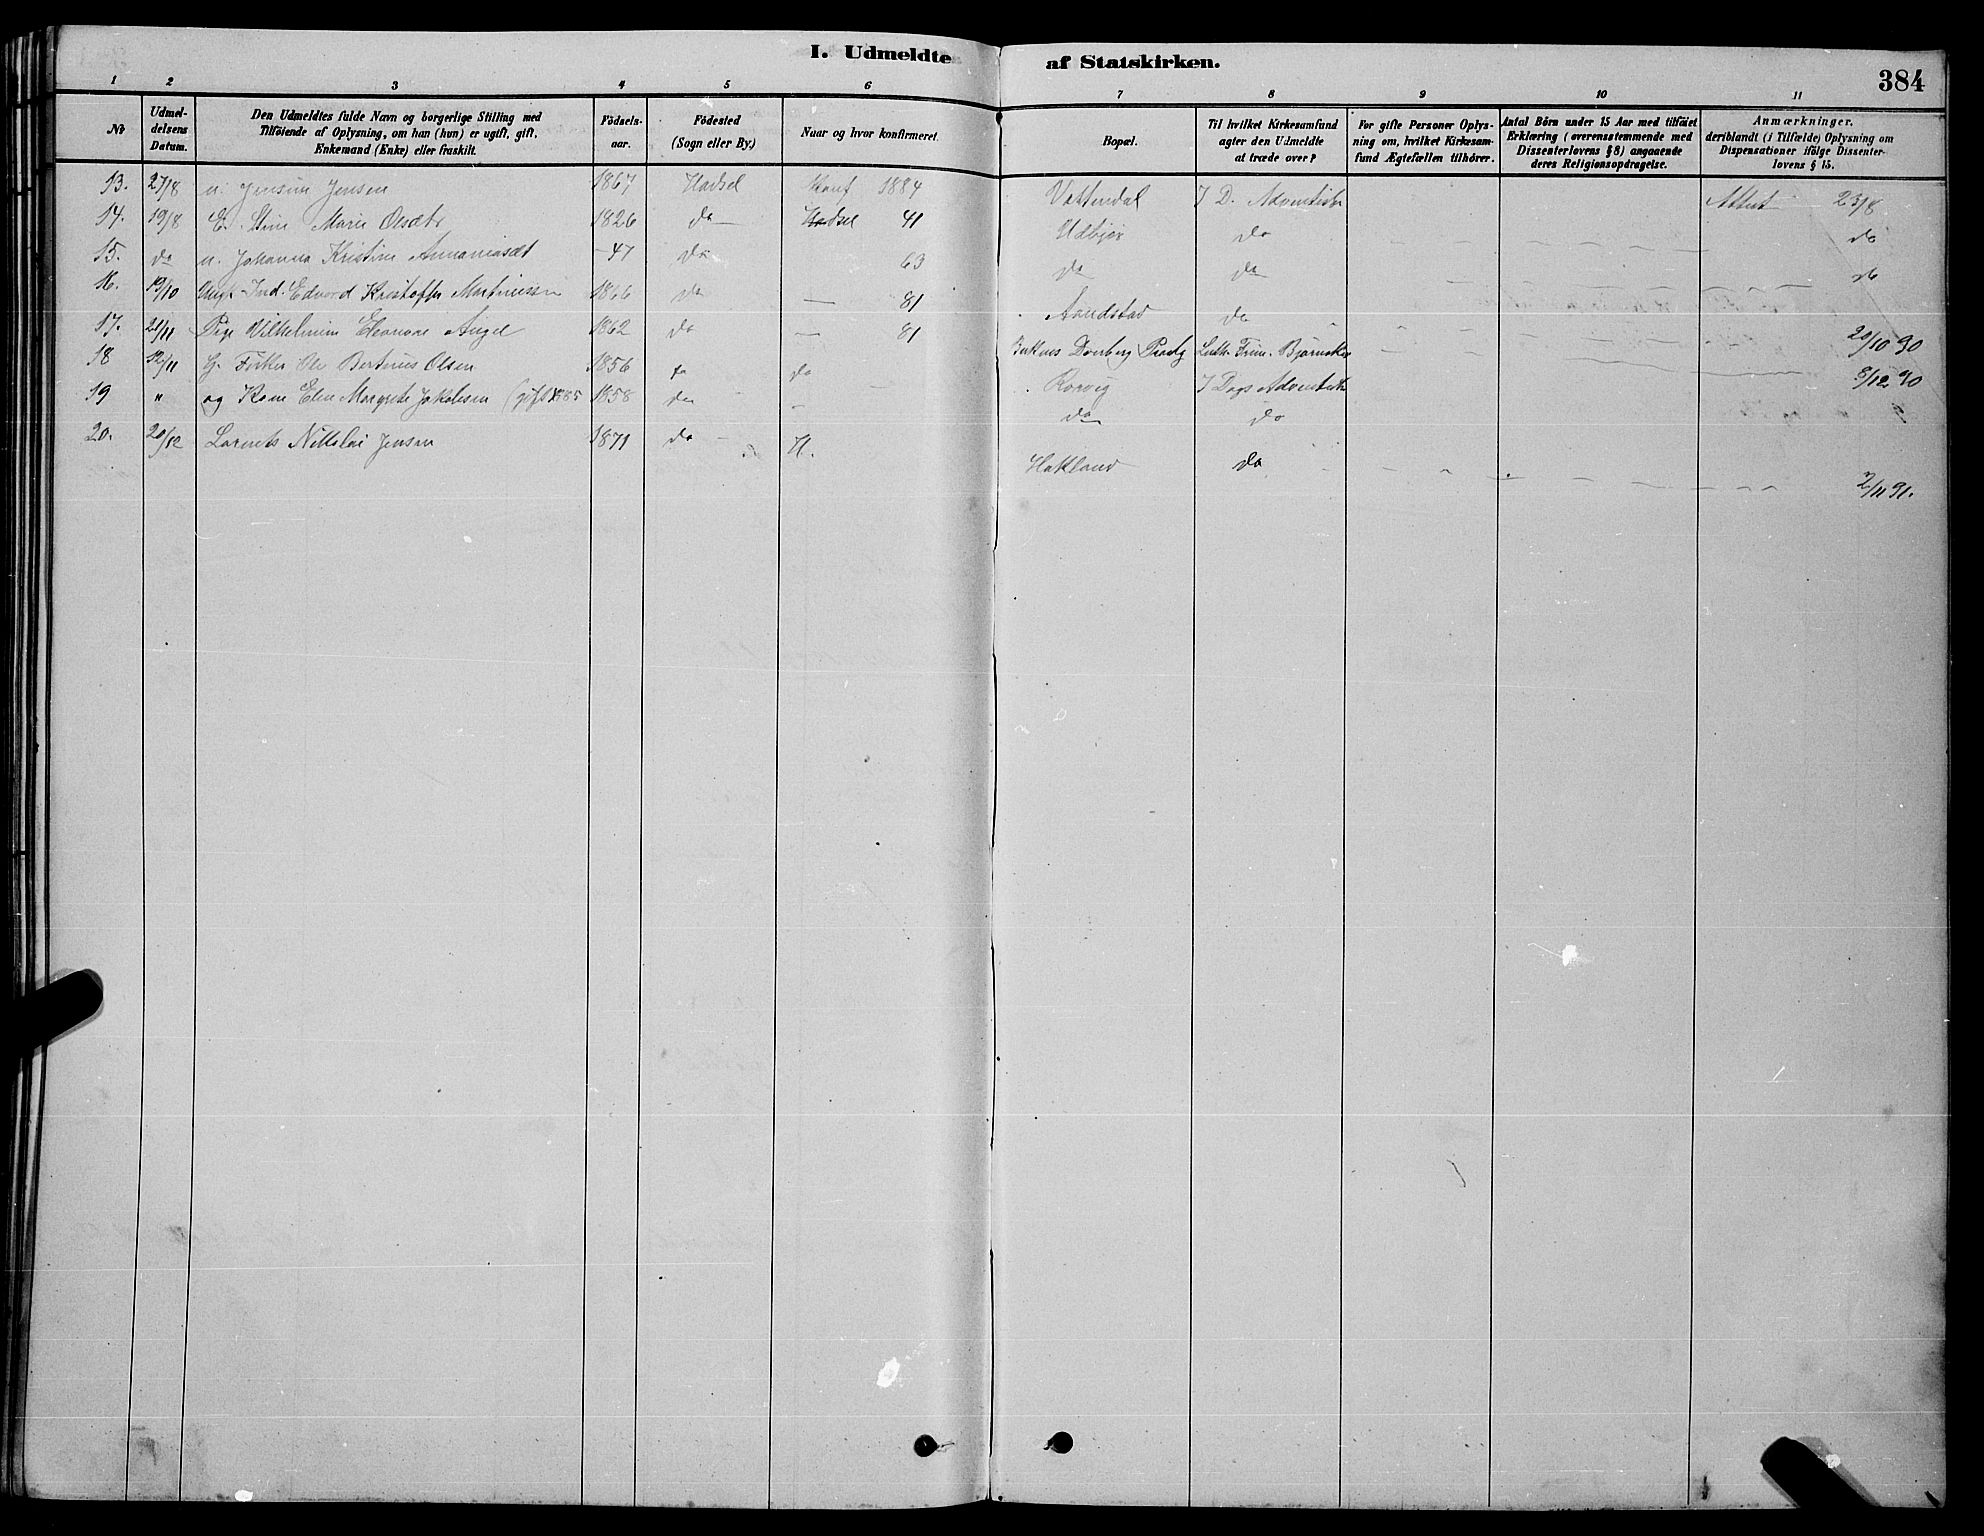 I. Udmeldte af Statskirken.
384
1 2 3 4 5 6 7 8 9 10 11
No
Udmel-
delsens
Datum.
Den Udmeldtes fulde Navn og borgerlige Stilling med
Tilföiende af Oplysning, om han (hun) er ugift, gift,
Enkemand (Enke) eller fraskilt.
Födsels-
aar.
Födested
(Sogn eller By.)
Naar og hvor konfirmeret.
Bopæl.
Til hvilket Kirkesamfund
agter den Udmeldte
at træde over?
For gifte Personer Oplys-
ning om, hvilket Kirkesam-
fund Ægtefællen tilhörer.
Antal Börn under 15 Aar med tilföiet
Erklæring (overensstemmende med
Dissenterlovens § 8) angaaende
deres Religionsopdragelse.
Anmærkninger,
deriblandt (i Tilfælde) Oplysning om
Dispensationer ifölge Dissenter-
lovens § 15.
13. 27/8 u. Jensine Jensen 1867 Hadsel Konf 1884 Vattendal 7 D. Adventister Attest 23/8
14. 19/8 E. Stine Marie Olsdtr 1826 do Hadsel 41 do do
15. do u. Johanna Kristine Ananiasdt -47 do 63 do do do
16. 19/10 Ungk. Ind. Edvard Kristoffer Martinussen 1866 do 81 Aandstad do
17. 21/11 Pige Vilhelmine Eleonore Angel 1862 do 81 Luth. Frim. 20/10 90
18 12/11 G. Fisker Ole Bertinus Olsen 1856 do do Rorvig 7 Dags Adventister 8/12 90
19 " og Kone Elen Margrete Jakobsen (gift 1885 1858 do do do
20. 20/12 Lornts Nikolai Jensen 1871 do H. Hakland do 2/11 91.